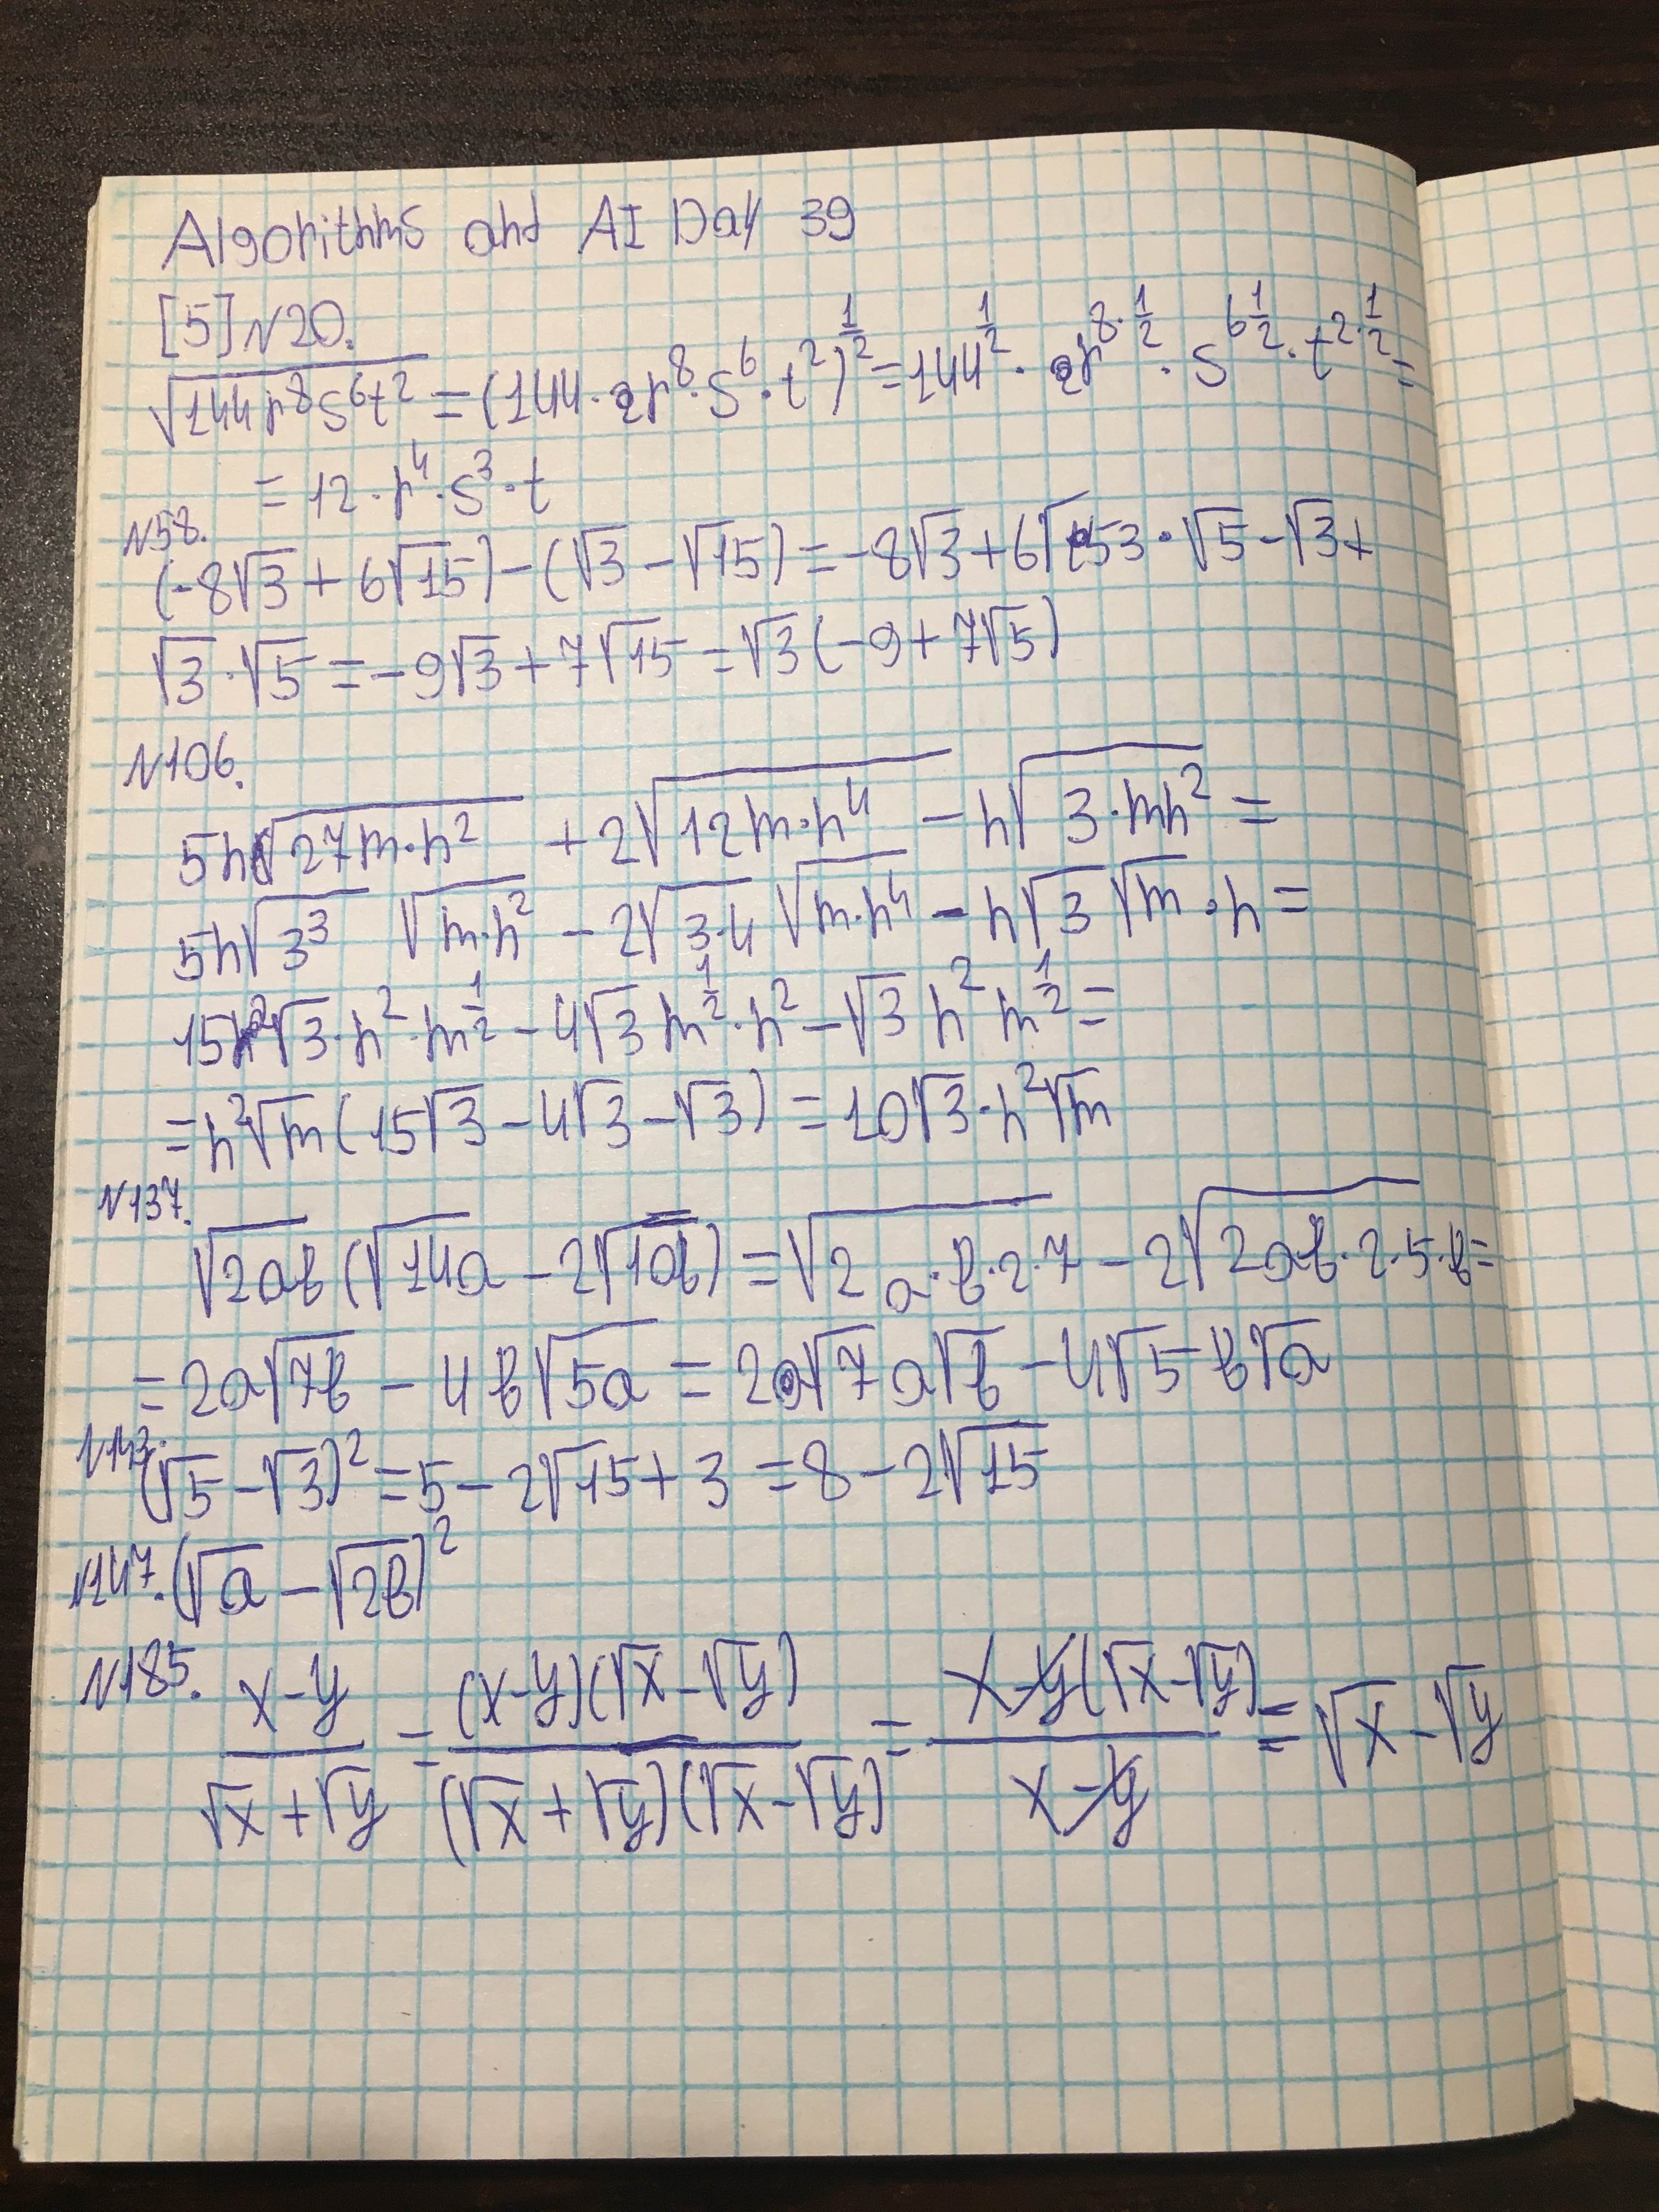 Algorithms and AI Day 39
[5] N20.
√(144r⁸s⁶t²) = (144·r⁸·s⁶·t²)^(1/2) = 144^(1/2) · r^(8·1/2) · s^(6 1/2) · t^(2·1/2) =
= 12·r⁴·s³·t
N58.
(-8√3 + 6√15) - (√3 - √15) = -8√3 + 6√3·√5 - √3 +
√3·√5 = -9√3 + 7√15 = √3(-9 + 7√5)
N106.
5n√(27m·n²) + 2√(12m·n⁴) - n√(3·mn²) =
5n√(3³) √(m·n²) - 2√(3·4) √(m·n⁴) - n√3 √m · n =
15√3·n²·m^(1/2) - 4√3 m^(1/2)·n² - √3 n² m^(1/2) =
= n²√m(15√3 - 4√3 - √3) = 10√3·n²√m
N137.
√(2ab) (√(14a) - 2√(10b)) = √(2a·b·2·7) - 2√(2ab·2·5·b) =
= 2a√(7b) - 4b√(5a) = 2√7 a√b - 4√5 b√a
N143. (√5 - √3)² = 5 - 2√15 + 3 = 8 - 2√15
N147. (√a - √(2b))²
N185. (x-y)/(√x+√y) = ((x-y)(√x-√y))/((√x+√y)(√x-√y)) = (x-y(√x-√y))/(x-y) = √x - √y